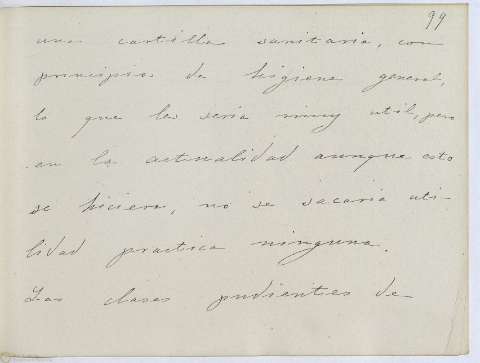 99
una cartilla sanitaria, con
principios de higiene general,
lo que les seria muy util, pero
en la actualidad aunque esto
se hiciera, no se sacaria uti-
lidad practica ninguna.
Las clases pudientes de-